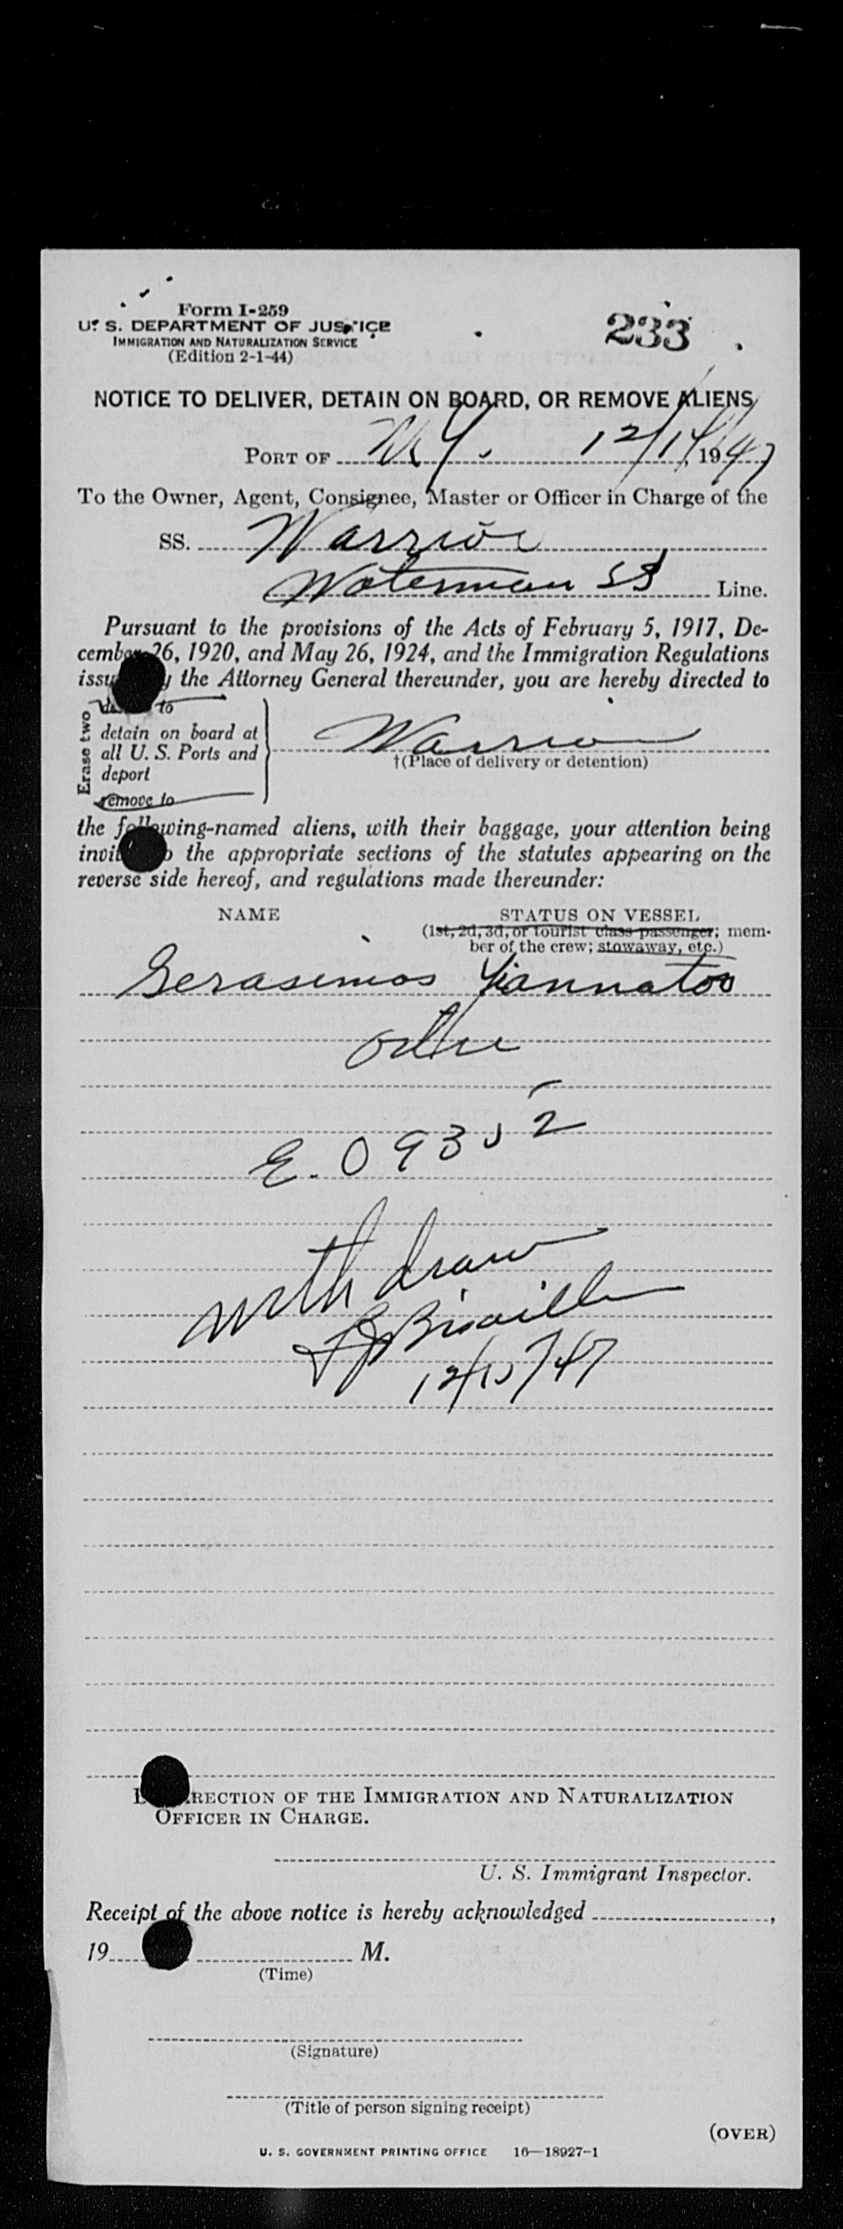 Form I-259
U. S. DEPARTMENT OF JUSTICE
IMMIGRATION AND NATURALIZATION SERVICE
(Edition 2-1-44)
233
NOTICE TO DELIVER, DETAIN ON BOARD, OR REMOVE ALIENS
PORT OF N.Y. 12/14, 1947
To the Owner, Agent, Consignee, Master or Officer in Charge of the
SS. Warrior
Waterman SS Line.
Pursuant to the provisions of the Acts of February 5, 1917, De-
cember 26, 1920, and May 26, 1924, and the Immigration Regulations
issued by the Attorney General thereunder, you are hereby directed to
Erase two
to
detain on board at
all U. S. Ports and
deport
remove to
Warrior
†(Place of delivery or detention)
the following-named aliens, with their baggage, your attention being
invited to the appropriate sections of the statutes appearing on the
reverse side hereof, and regulations made thereunder:
NAME STATUS ON VESSEL
(1st, 2d, 3d, or tourist class passenger; mem-
ber of the crew; stowaway, etc.)
Gerasimos Yiannatos
E. 09352
withdraw
12/15/47
DIRECTION OF THE IMMIGRATION AND NATURALIZATION
OFFICER IN CHARGE.
U. S. Immigrant Inspector.
Receipt of the above notice is hereby acknowledged ,
19 M.
(Time)
(Signature)
(Title of person signing receipt)
(OVER)
U. S. GOVERNMENT PRINTING OFFICE 16—18927-1